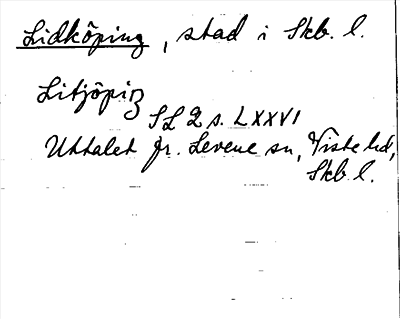 Lidköping, stad i Skb. l.
Litjöpiŋ
SL 2 s. LXXVI
Uttalet fr. Levene sn, Viste hd,
Skb l.